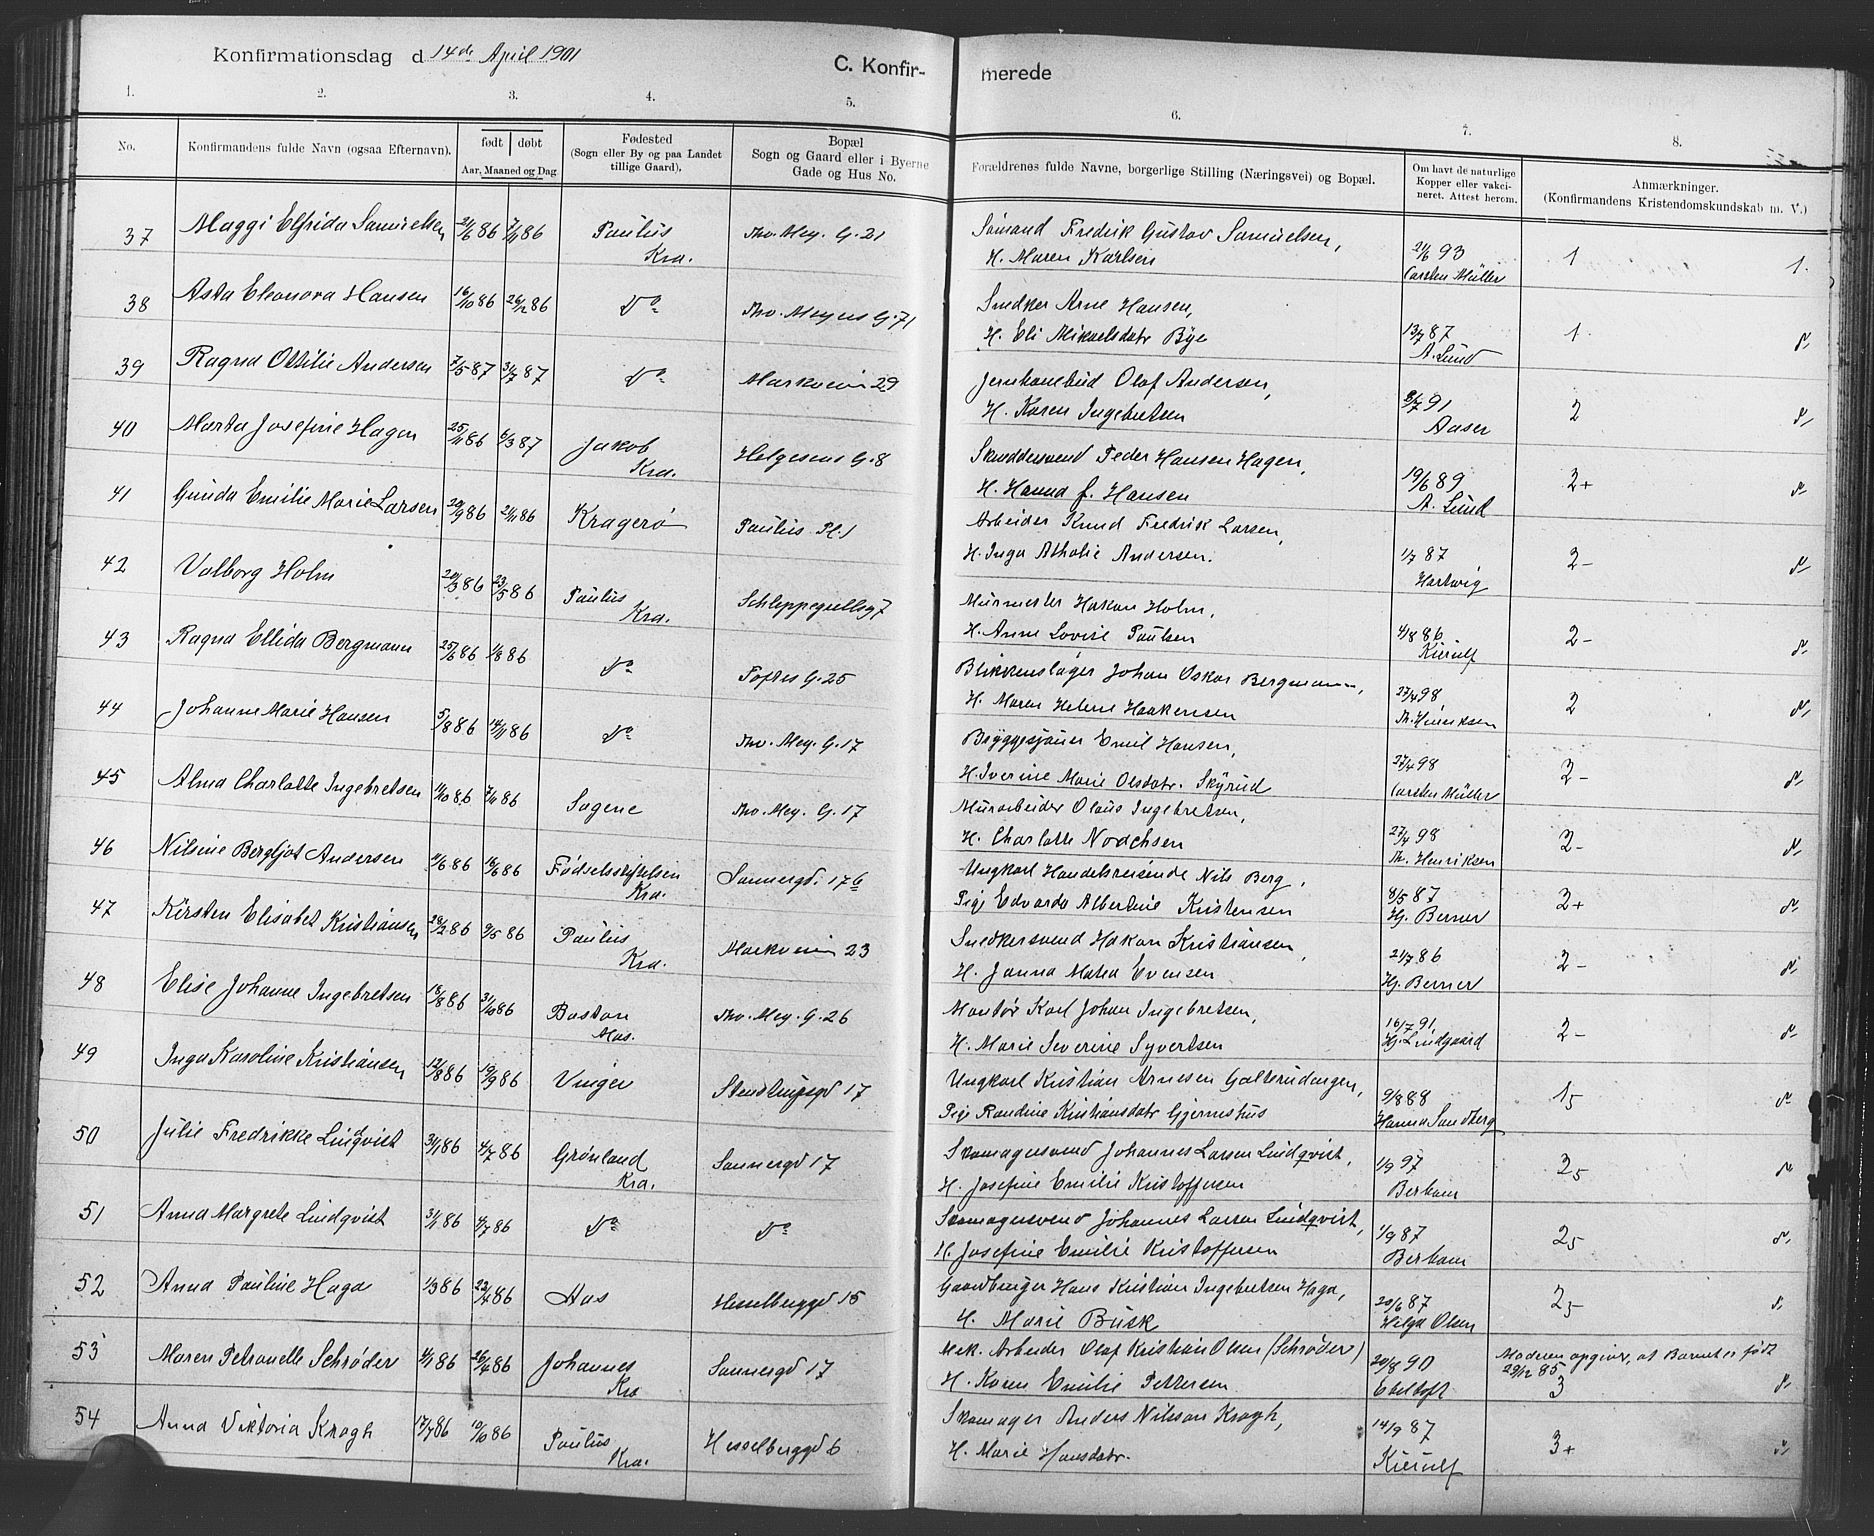 Konfirmationsdag d 14de April 1901
C. Konfir- merede
1. 2. 3. 4. 5. 6. 7. 8.
No.
Konfirmandens fulde Navn (ogsaa Efternavn).
født døbt
Aar, Maaned og Dag
Fødested
(Sogn eller By og paa Landet
tillige Gaard).
Bopæl
Sogn og Gaard eller i Byerne
Gade og Hus No.
Forældrenes fulde Navne, borgerlige Stilling (Næringsvei) og Bopæl.
Om havt de naturlige
Kopper eller vakci-
neret. Attest herom.
Anmærkninger.
(Konfirmandens Kristendomskundskab m. V.)
37 Maggi Elfrida Samuelsen 21/6 86 7/11 86 Paulus Kra. Tho. Mey. G. 21
Sømand Fredrik Gustav Samuelsen,
H. Maren Karlsen 21/6 93 Carsten Müller 1 1.
38 Asta Eleonora Hansen 16/10 86 26/12 86 Do Tho. Meyers G. 71
Snedker Arne Hansen,
H. Eli Mikaelsdatr Bye 13/7 87 A. Lund 1
39 Ragna Ottilie Andersen 7/5 87 31/7 87 Do Markveien 29
Jernbanebud Olaf Andersen,
H. Karen Ingebretsen 91 Aaser 2
40 Marta Josefine Hagen 25/11 86 6/3 87 Jakob Kra. Helgesens G. 8
Skræddersvend Peder Hansen Hagen,
H. Hanna f. Hansen 19/6 89 A. Lund 2+
41 Gunda Emilie Marie Larsen 20/9 86 21/11 86 Kragerø Paulus Pl. 1
Arbeider Knud Fredrik Larsen,
H. Inga Athalie Andersen. 1/7 87 Hartwig 2-
42 Valborg Holm 20/3 86 23/5 86 Paulus Kra. Schleppegrellsg 7
Murmester Hakon Holm,
H. Anne Lovise Paulsen 4/8 86 Kierulf 2-
43 Ragna Ellida Bergmann 25/6 86 1/8 86 Do Toftes G. 25
Blikkenslager Johan Oskar Bergmann,
H. Maren Helene Haakensen 27/4 98 Th. Henriksen 2
44 Johanne Marie Hansen 5/8 86 14/11 86 Do Tho. Mey. G. 17
Bryggesjauer Emil Hansen,
H. Iverine Marie Olsdatr. Skyrud 27/4 98 Carsten Müller 2-
45 Alma Charlotte Ingebretsen 86 7/11 86 Sagene Tho. Mey. G. 17
Murarbeider Olaus Ingebretsen,
H. Charlotte Nodchsen 27/4 98 Th. Henriksen 2-
46 Nilsine Bergljot Andersen 86 18/6 86 Fødselsstiftelsen Kra. Sannergd. 17b
Ungkarl Handelsreisende Nils Berg,
Pige Edvarda Albertine Kristensen 8/5 87 Hj. Berner 2+
47 Kirsten Elisabet Kristiansen 28/2 86 9/5 86 Paulus Kra. Markveien 23
Snedkersvend Hakon Kristiansen,
H. Janna Matea Evensen 21/7 86 Hj. Berner 2-
48 Elise Johanne Ingebretsen 18/8 86 31/10 86 Boston Mas. Tho. Mey. G. 26
Montør Karl Johan Ingebretsen,
H. Marie Severine Syvertsen 16/7 91 Hj. Lindgaard 2-
49 Inga Karoline Kristiansen 12/8 86 19/9 86 Vinger Stenstrupsgd 17
Ungkarl Kristian Arnesen Galterudengen,
Pige Randine Kristiansdatr Gjerneshus 9/8 88 Hanna Sandberg 1,5
50 Julie Fredrikke Lindqvist 31/1 86 4/7 86 Grønland Kra. Sannergd 17
Skomagersvend Johannes Larsen Lindqvist,
H. Josefine Emilie Kristoffersen 1/9 97 Berbom 2,5
51 Anna Margrete Lindqvist 31/1 86 4/7 86 Do Do
Skomagersvend Johannes Larsen Lindqvist,
H. Josefine Emilie Kristoffersen 1/9 87 Berbom 2,5
52 Anna Pauline Haga 1/3 86 22/4 86 Aas Hesselberggd 15
Gaardbruger Hans Kristian Ingebretsen Haga,
H. Marie Busk 20/6 87 Helga Olsen 2,5
53 Maren Petronelle Schrøder 86 26/4 86 Johannes Kra Sannergd 17
Mek. Arbeider Olaf Kristian Olsen (Schrøder)
H. Karen Emilie Pettersen 20/8 90 Ebeltoft
Moderen opgiver, at Barnet er født
29/12 85 3
54 Anna Viktoria Krogh 17/7 86 19/10 86 Paulus Kra. Hesselberggd 6
Skomager Anders Nilsson Krogh,
H. Marie Hansdatr. 14/9 87 Kierulf 3+